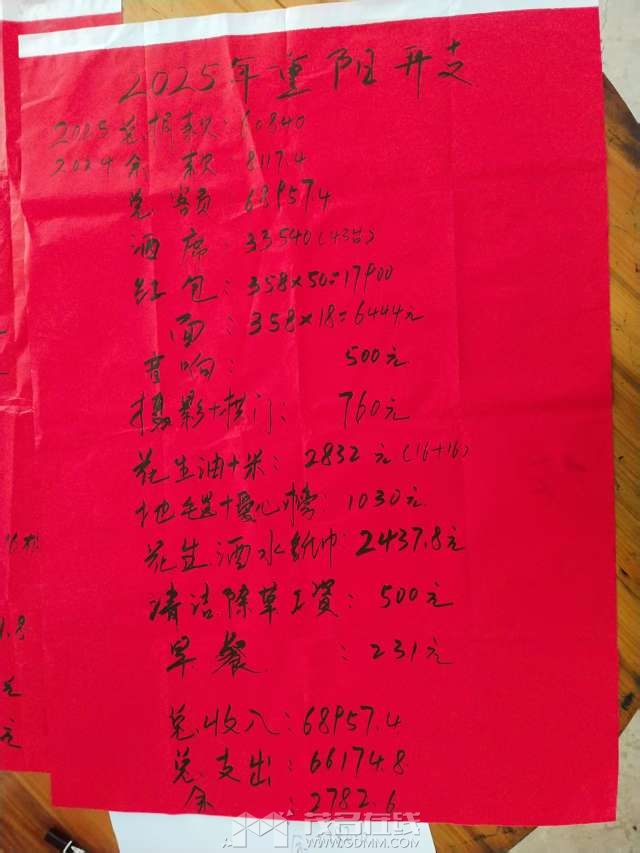 2025年重阳开支
2025总捐款:60840
2024余款 8117.4
总额:68957.4
酒席:33540(43台)
红包:358×50=17900
面:358×18=6444元
音响: 500元
摄影+拱门: 760元
花生油+米:2832元(16+16)
地毯+ 1030元
花生酒水纸巾:2437.8元
清洁除草工资:500元
早餐:231元
总收入:68957.4
总支出:66174.8
余:2782.6
茂名在线
WWW.GDMM.COM